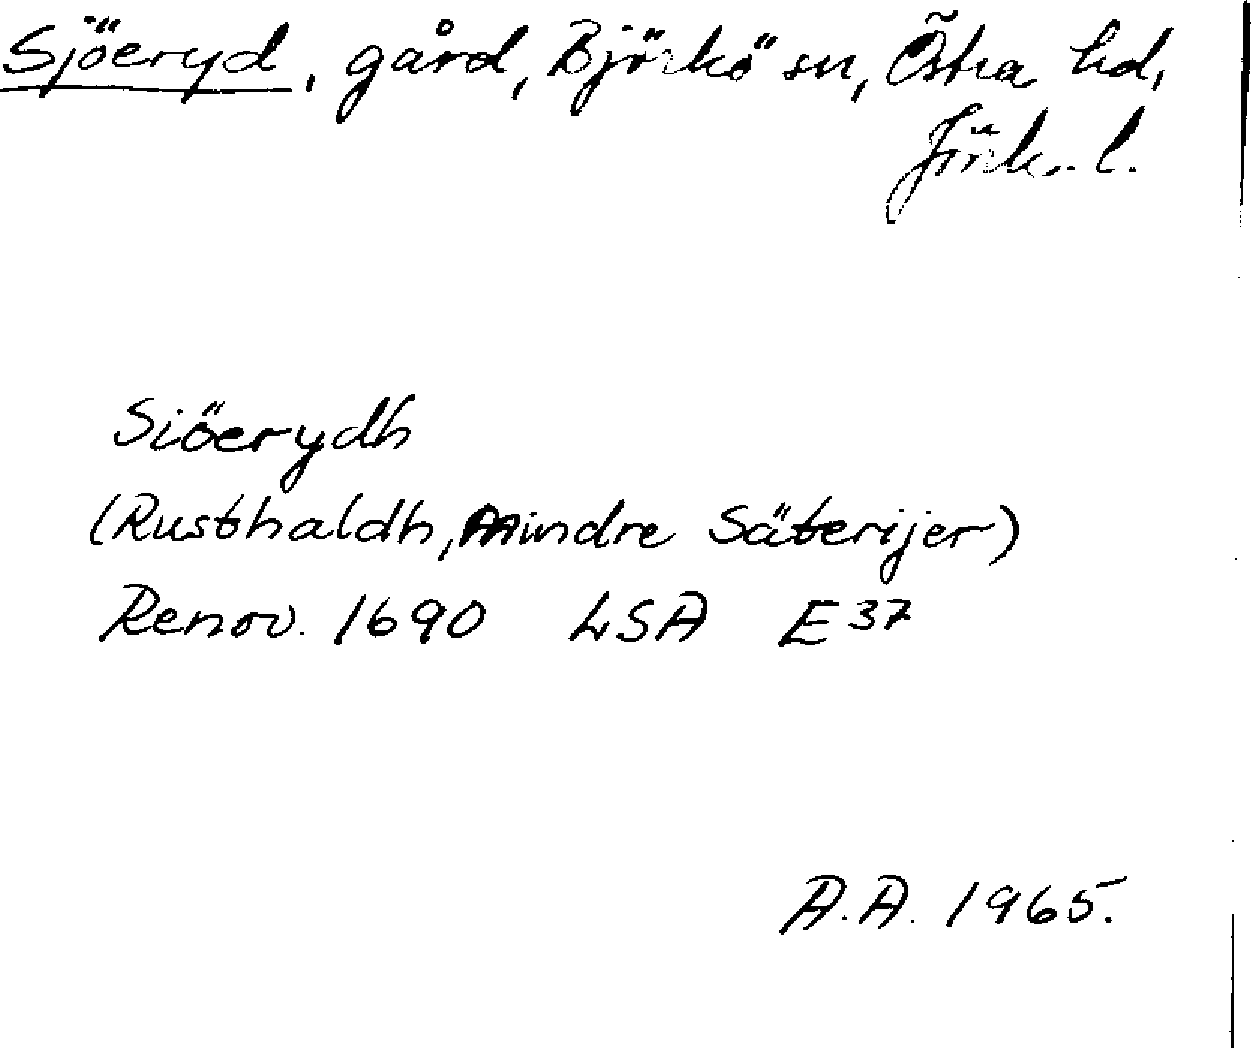 Sjöeryd, gård, Björkö sn, Östra hd,
Jönk. l.
Siöerydh
(Rusthaldh, Mindre Säterijer)
Renov. 1690 LSA E 37
A.A. 1965.